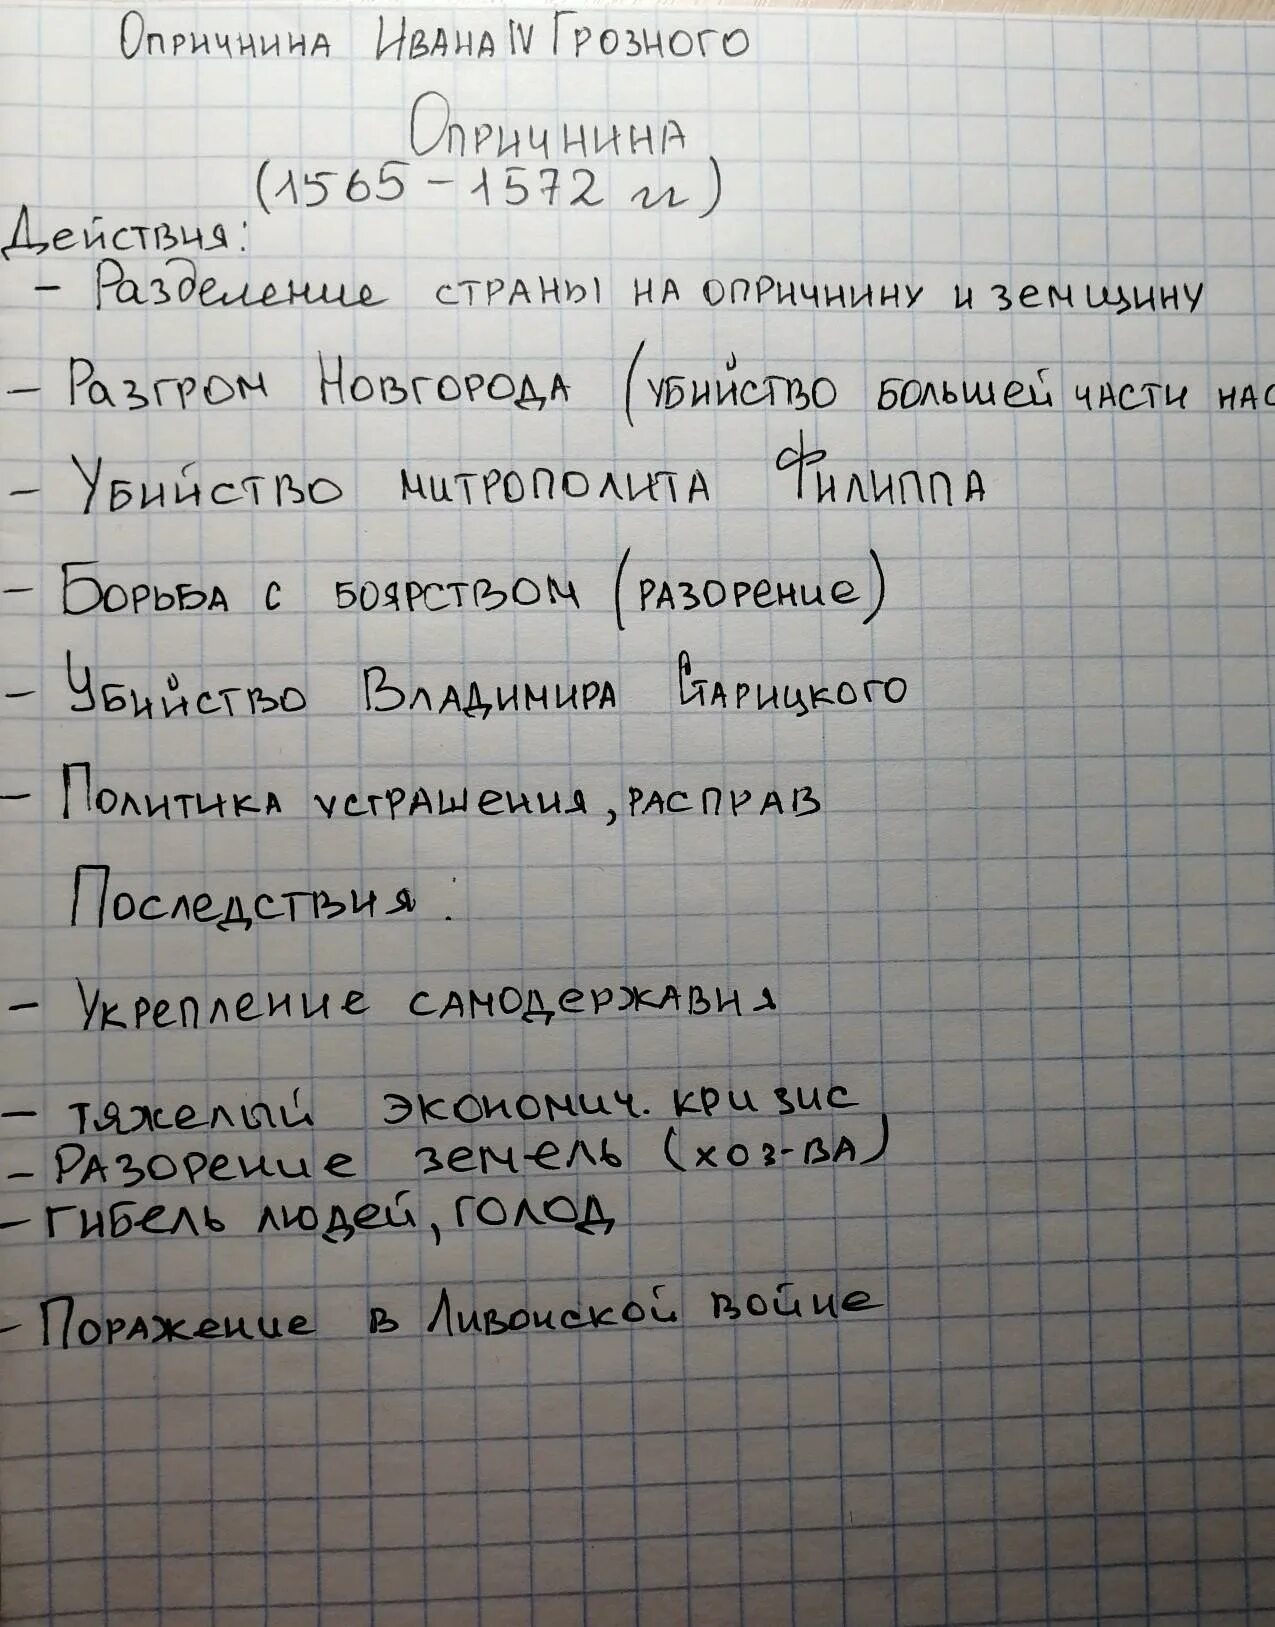 Опричнина Ивана IV Грозного
Опричнина
(1565 - 1572 гг)
Действия:
- Разделение страны на опричнину и земщину
- Разгром Новгорода (убийство большей части нас
- Убийство митрополита Филиппа
- Борьба с боярством (разорение)
- Убийство Владимира Старицкого
- Политика устрашения, расправ
Последствия:
- Укрепление самодержавия
- тяжелый экономич. кризис
- Разорение земель (хоз-ва)
- гибель людей, голод
- Поражение в Ливонской войне